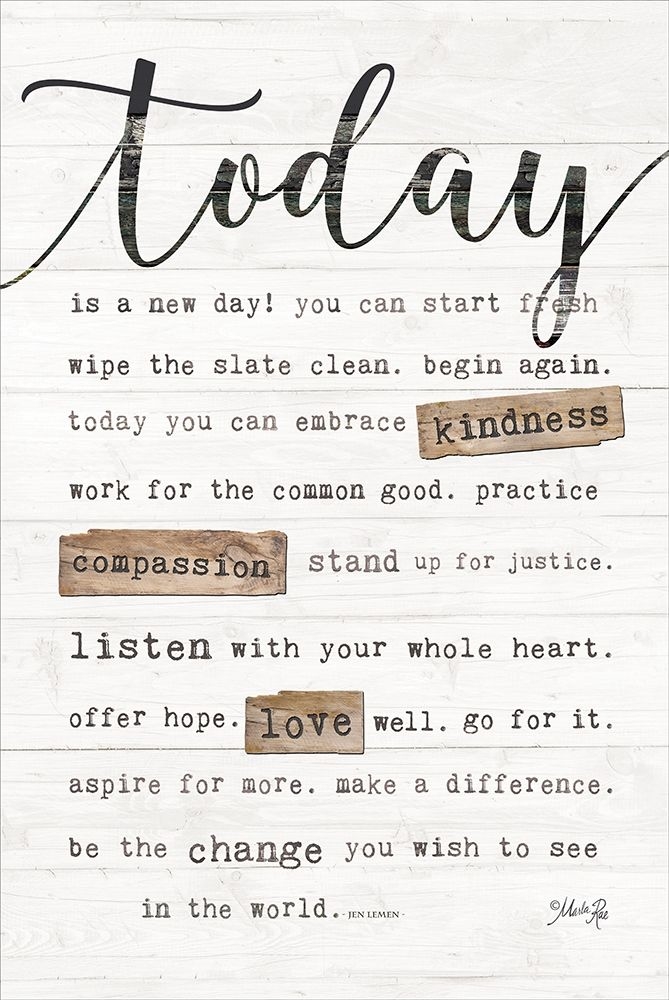 today
is a new day! you can start fresh
wipe the slate clean. begin again.
today you can embrace kindness
work for the common good. practice
compassion stand up for justice.
listen with your whole heart.
offer hope. love well. go for it.
aspire for more. make a difference.
be the change you wish to see
in the world. - JEN LEMEN -
© Marla Rae